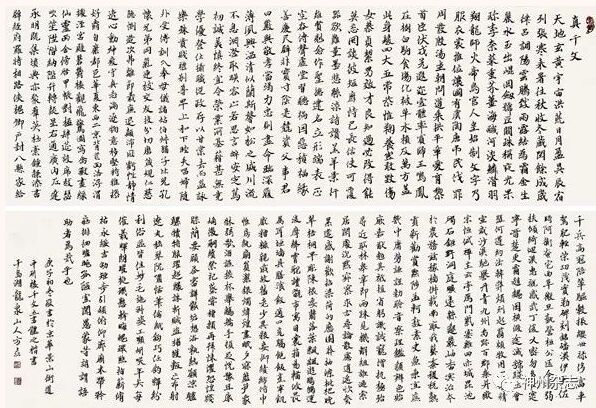 真千文
天地玄黄宇宙洪荒日月盈昃辰宿
列張寒來暑往秋收冬藏閏餘成歲
律吕調陽雲騰致雨露結為霜金生
麗水玉出崐岡劍號巨闕珠稱夜光果
珍李柰菜重芥薑海鹹河淡鱗潛羽
翔龍師火帝鳥官人皇始制文字乃
服衣裳推位讓國有虞陶唐弔民伐罪
周發殷湯坐朝問道垂拱平章愛育黎
首臣伏戎羌遐邇壹體率賓歸王鳴鳳
在樹白駒食場化被草木賴及萬方蓋
此身髮四大五常恭惟鞠養豈敢毀傷
女慕貞絜男效才良知過必改得能
莫忘罔談彼短靡恃己長信使可覆
器欲難量墨悲絲染詩讚羔羊景行
維賢剋念作聖德建名立形端表正
空谷傳聲虛堂習聽禍因惡積福緣
善慶尺璧非寶寸陰是競資父事君
曰嚴與敬孝當竭力忠則盡命臨深履
薄夙興溫凊似蘭斯馨如松之盛川流
不息淵澄取映容止若思言辭安定篤
初誠美慎終宜令榮業所基籍甚無竟
學優登仕攝職從政存以甘棠去而益詠
樂殊貴賤禮別尊卑上和下睦夫唱婦隨
外受傅訓入奉母儀諸姑伯叔猶子比兒孔
懷兄弟同氣連枝交友投分切磨箴規仁慈
隱惻造次弗離節義廉退顛沛匪虧性靜情
逸心動神疲守真志滿逐物意移堅持雅操
好爵自縻都邑華夏東西二京背芒面洛浮渭
據涇宮殿盤鬱樓觀飛驚圖寫禽獸畫綵
仙靈丙舍傍啓甲帳對楹肆筵設席鼓瑟
吹笙陞階納陛弁轉疑星右通廣內左達
承明既集墳典亦聚群英杜稾鍾隸漆書
壁經府羅將相路俠槐卿戶封八縣家給
千兵高冠陪輦驅轂振纓世祿侈富車
駕肥輕策功茂實勒碑刻銘磻溪伊尹佐
時阿衡奄宅曲阜微旦孰營桓公匡合濟弱
扶傾綺迴漢惠說感武丁俊乂密勿多士寔
寧晉楚更霸趙魏困橫假途滅虢踐土會
盟何遵約法韓弊煩刑起翦頗牧用軍最精
宣威沙漠馳譽丹青九州禹跡百郡秦并嶽
宗恒岱禪主云亭鴈門紫塞雞田赤城昆池
碣石鉅野洞庭曠遠綿邈巖岫杳冥治本
於農務兹稼穡俶載南畝我藝黍稷稅熟
貢新勸賞黜陟孟軻敦素史魚秉直庶
幾中庸勞謙謹勑聆音察理鑑貌辨色貽
厥嘉猷勉其祗植省躬譏誡寵增抗極殆
辱近恥林皋幸即兩疏見機解組誰逼索
居閑處沉默寂寥求古尋論散慮逍遙欣奏
累遣慼謝歡招渠荷的歷園莽抽條枇杷晚
翠梧桐早凋陳根委翳落葉飄颻遊鵾獨運
凌摩絳霄耽讀翫市寓目囊箱易輶攸畏
屬耳垣牆具膳餐飯適口充腸飽飫烹宰飢
厭糟糠親戚故舊老少異糧妾御績紡侍巾
帷房紈扇圓潔銀燭煒煌晝眠夕寐藍筍象
床弦歌酒讌接杯舉觴矯手頓足悅豫且康
嫡後嗣續祭祀蒸嘗稽顙再拜悚懼恐惶
牋牒簡要顧答審詳骸垢想浴執熱願涼驢
騾犢特駭躍超驤誅斬賊盜捕獲叛亡布射
遼丸嵇琴阮嘯恬筆倫紙鈞巧任釣釋紛
利俗並皆佳妙毛施淑姿工顰妍笑年矢每
催曦暉朗耀璇璣懸斡晦魄環照指薪脩
祜永綏吉劭矩步引領俯仰廊廟束帶矜
莊徘徊瞻眺孤陋寡聞愚蒙等誚謂語
助者焉哉乎也
庚子初夏敬書於京華景山街道
千島湖龍泉山人方志
神州杂志